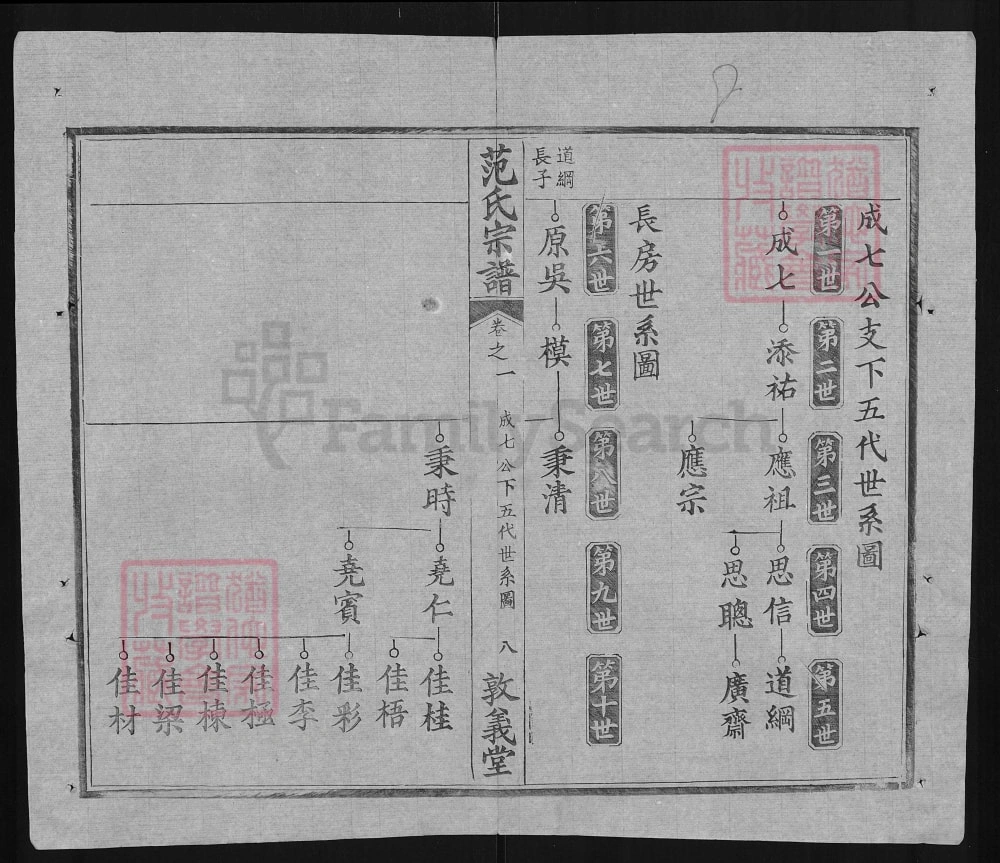 成七公支下五代世系圖
第一世
第二世
第三世
第四世
第五世
成七
添祐
應祖
思信
道綱
思聰
廣齋
應宗
長房世系圖
第六世
第七世
第八世
第九世
第十世
道綱
長子
原吳
模
秉清
范氏宗譜
卷之一
成七公下五代世系圖
八
敦義堂
秉時
堯仁
佳桂
佳梧
堯賓
佳彩
佳李
佳極
佳棟
佳梁
佳材
FamilySearch